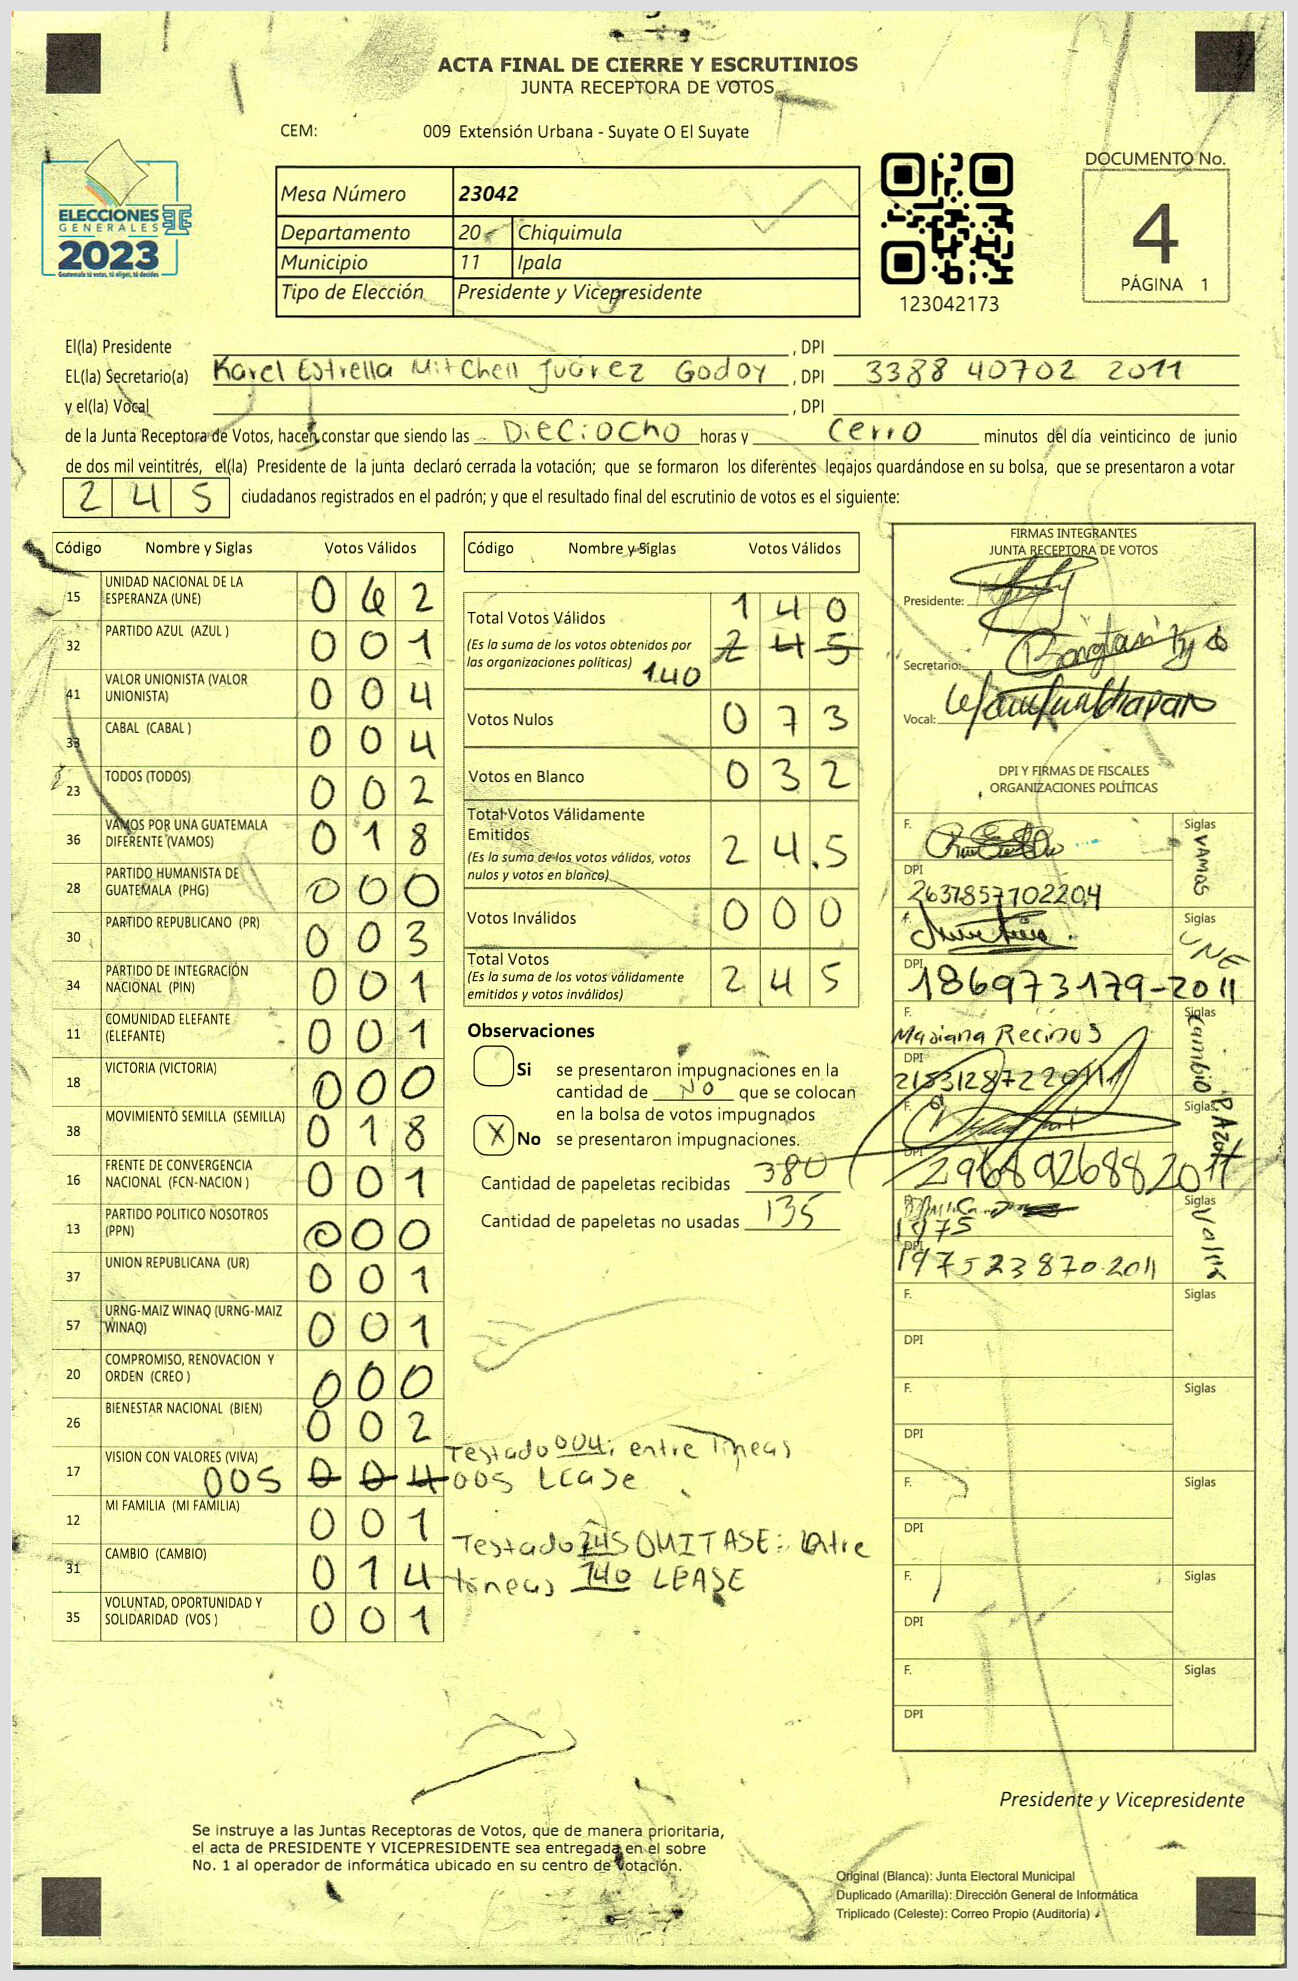 ACTA FINAL DE CIERRE Y ESCRUTINIOS
JUNTA RECEPTORA DE VOTOS
CEM: 009 Extensión Urbana - Suyate O El Suyate
ELECCIONES
GENERALES
2023
Guatemala tú votas, tú eliges, tú decides
Mesa Número 23042
Departamento 20 Chiquimula
Municipio 11 Ipala
Tipo de Elección Presidente y Vicepresidente
123042173
DOCUMENTO No.
4
PÁGINA 1
El(la) Presidente , DPI
EL(la) Secretario(a) Karel Estrella Mitchell Juárez Godoy , DPI 3388 40702 2011
y el(la) Vocal , DPI
de la Junta Receptora de Votos, hacen constar que siendo las Dieciocho horas y cerro minutos del día veinticinco de junio
de dos mil veintitrés, el(la) Presidente de la junta declaró cerrada la votación; que se formaron los diferentes legajos guardándose en su bolsa, que se presentaron a votar
2 4 5 ciudadanos registrados en el padrón; y que el resultado final del escrutinio de votos es el siguiente:
Código Nombre y Siglas Votos Válidos
15 UNIDAD NACIONAL DE LA ESPERANZA (UNE) 0 6 2
32 PARTIDO AZUL (AZUL ) 0 0 1
41 VALOR UNIONISTA (VALOR UNIONISTA) 0 0 4
33 CABAL (CABAL ) 0 0 4
23 TODOS (TODOS) 0 0 2
36 VAMOS POR UNA GUATEMALA DIFERENTE (VAMOS) 0 1 8
28 PARTIDO HUMANISTA DE GUATEMALA (PHG) 0 0 0
30 PARTIDO REPUBLICANO (PR) 0 0 3
34 PARTIDO DE INTEGRACIÓN NACIONAL (PIN) 0 0 1
11 COMUNIDAD ELEFANTE (ELEFANTE) 0 0 1
18 VICTORIA (VICTORIA) 0 0 0
38 MOVIMIENTO SEMILLA (SEMILLA) 0 1 8
16 FRENTE DE CONVERGENCIA NACIONAL (FCN-NACION ) 0 0 1
13 PARTIDO POLITICO NOSOTROS (PPN) 0 0 0
37 UNION REPUBLICANA (UR) 0 0 1
57 URNG-MAIZ WINAQ (URNG-MAIZ WINAQ) 0 0 1
20 COMPROMISO, RENOVACION Y ORDEN (CREO ) 0 0 0
26 BIENESTAR NACIONAL (BIEN) 0 0 2
17 VISION CON VALORES (VIVA) 005 0 0 4
12 MI FAMILIA (MI FAMILIA) 0 0 1
31 CAMBIO (CAMBIO) 0 1 4
35 VOLUNTAD, OPORTUNIDAD Y SOLIDARIDAD (VOS ) 0 0 1
Código Nombre y Siglas Votos Válidos
Total Votos Válidos 1 4 0
(Es la suma de los votos obtenidos por las organizaciones políticas) 2 4 5
140
Votos Nulos 0 7 3
Votos en Blanco 0 3 2
Total Votos Válidamente Emitidos 2 4 5
(Es la suma de los votos válidos, votos nulos y votos en blanco)
Votos Inválidos 0 0 0
Total Votos 2 4 5
(Es la suma de los votos válidamente emitidos y votos inválidos)
Observaciones
Si se presentaron impugnaciones en la
cantidad de NO que se colocan
en la bolsa de votos impugnados
X No se presentaron impugnaciones.
Cantidad de papeletas recibidas 380
Cantidad de papeletas no usadas 135
Testado 004; entre lineas
005 Lease
Testado 245 OMITASE: Entre
lineas 140 LEASE
FIRMAS INTEGRANTES
JUNTA RECEPTORA DE VOTOS
Presidente:
Secretario:
Vocal:
DPI Y FIRMAS DE FISCALES
ORGANIZACIONES POLÍTICAS
F. Siglas VAMOS
DPI 2637857702204
F. Siglas UNE
DPI 186973179-2011
F. Mariana Recinos Siglas Cambio
DPI
F. Siglas P. Azul
DPI 2968926882011
F. Siglas Valor
1975
DPI 197523870 2011
F. Siglas
DPI
F. Siglas
DPI
F. Siglas
DPI
F. Siglas
DPI
F. Siglas
DPI
Presidente y Vicepresidente
Se instruye a las Juntas Receptoras de Votos, que de manera prioritaria,
el acta de PRESIDENTE Y VICEPRESIDENTE sea entregada en el sobre
No. 1 al operador de informática ubicado en su centro de votación.
Original (Blanca): Junta Electoral Municipal
Duplicado (Amarilla): Dirección General de Informática
Triplicado (Celeste): Correo Propio (Auditoría)